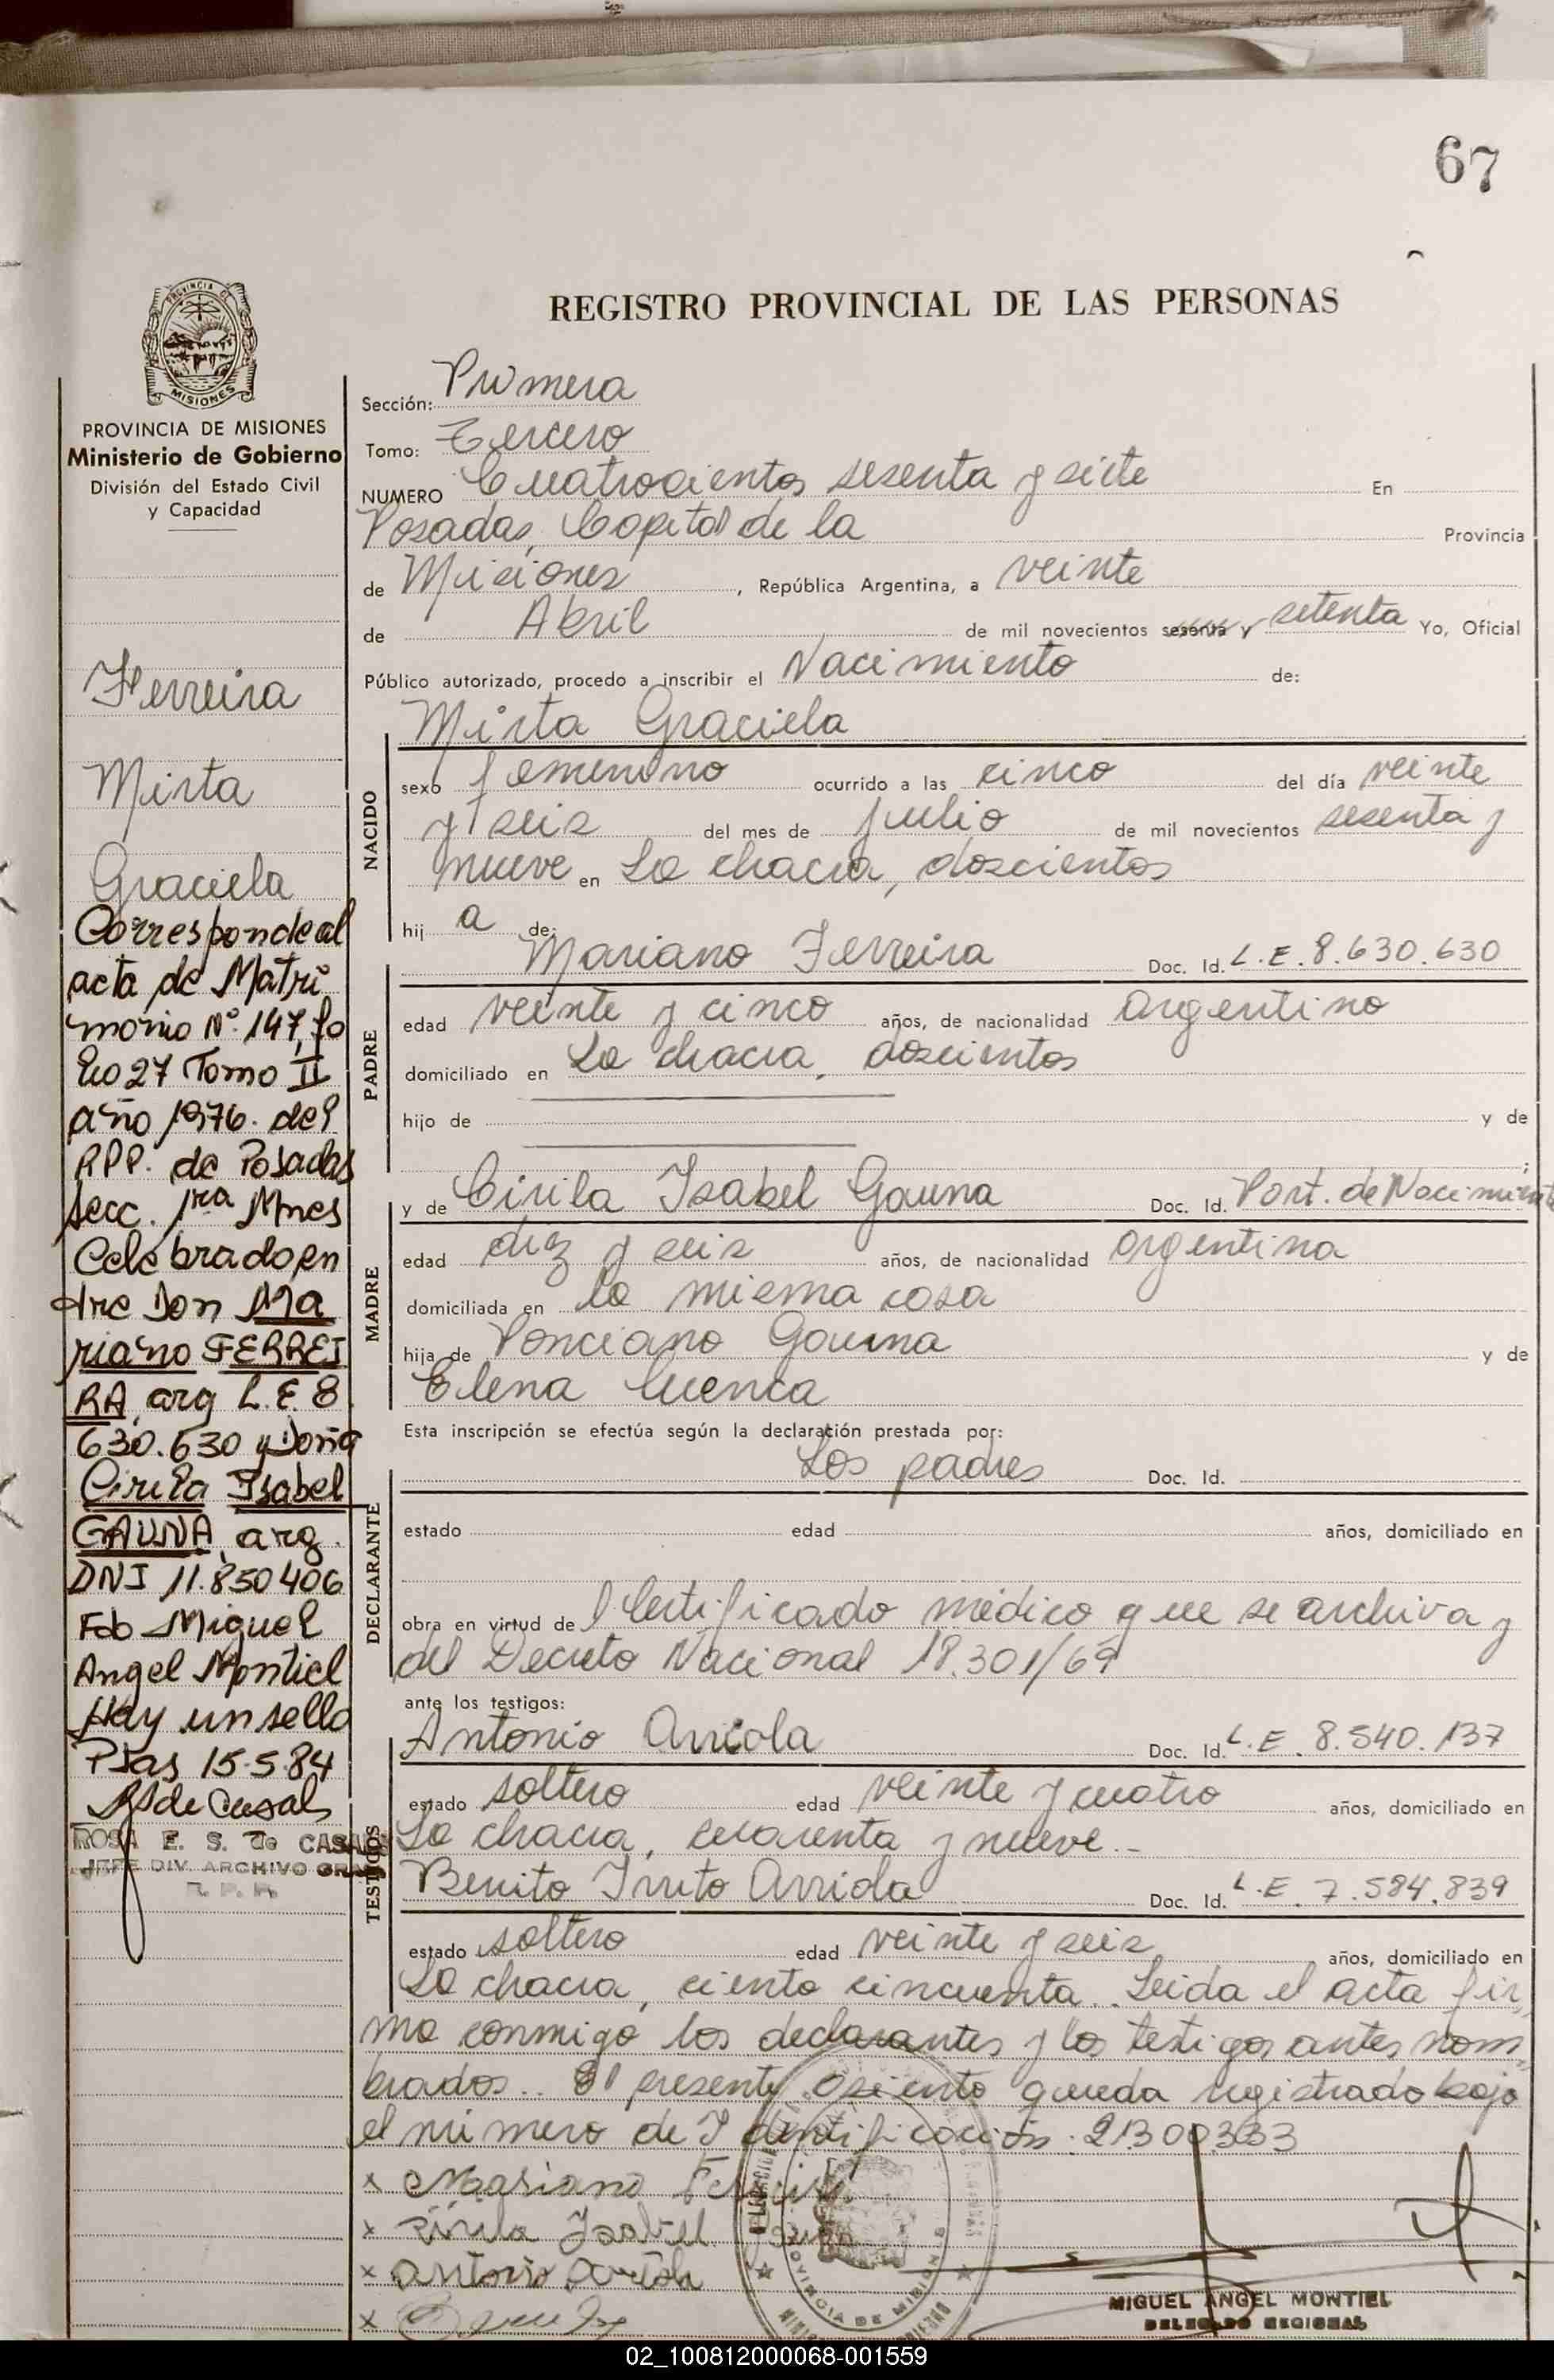 67
REGISTRO PROVINCIAL DE LAS PERSONAS
PROVINCIA DE
MISIONES
PROVINCIA DE MISIONES
Ministerio de Gobierno
División del Estado Civil
y Capacidad
Ferreira
Mirta
Graciela
Corresponde al
acta de Matri
monio Nº 147, fo
lio 27 Tomo II
año 1976. del
RPP. de Posadas
secc. 1ra Mnes
Celebrado en
tre Don Ma
riano FERREI
RA, arg L.E. 8.
630.630 y Doña
Cirila Isabel
GAUNA, arg.
DNI 11.850406
Fdo Miguel
Angel Montiel
Hay un sello
Psas 15.5.84
ROSA E. S. de CASALS
JEFE DIV. ARCHIVO GRAL
R. P. P.
Sección: Primera
Tomo: Tercero
NUMERO Cuatrocientos sesenta y siete En
Posadas, Capital de la Provincia
de Misiones, República Argentina, a veinte
de Abril de mil novecientos sesenta y setenta Yo, Oficial
Público autorizado, procedo a inscribir el Nacimiento de:
Mirta Graciela
NACIDO
sexo femenino ocurrido a las cinco del día veinte
y seis del mes de julio de mil novecientos sesenta y
nueve en La chacra, doscientos
hij a de:
Mariano Ferreira Doc. Id. L.E. 8.630.630
PADRE
edad veinte y cinco años, de nacionalidad argentino
domiciliado en La chacra, doscientos
hijo de y de
;
y de Cirila Isabel Gauna Doc. Id. Part. de Nacimiento
MADRE
edad diez y seis años, de nacionalidad argentina
domiciliada en la misma casa
hija de Ponciano Gauna y de
Elena Cuenca
Esta inscripción se efectúa según la declaración prestada por:
Los padres Doc. Id.
DECLARANTE
estado edad años, domiciliado en
obra en virtud del Certificado médico que se archiva y
del Decreto Nacional 18.301/69
ante los testigos:
Antonio Arriola Doc. Id. L.E. 8.540.137
TESTIGOS
estado soltero edad veinte y cuatro años, domiciliado en
La chacra, cuarenta y nueve.-
Benito Arriola Doc. Id. L.E. 7.584.839
estado soltero edad veinte y seis años, domiciliado en
La chacra, ciento cincuenta.. Leida el acta fir
ma conmigo los declarantes y los testigos antes nom
brados.. El presente asiento queda registrado bajo
el número de Identificación. 21300333
x Mariano Ferreira
x Cirila Isabel Gauna
x Antonio Arriola
x
PROVINCIA DE MISIONES
MIGUEL ANGEL MONTIEL
DELEGADO REGIONAL
02_100812000068-001559